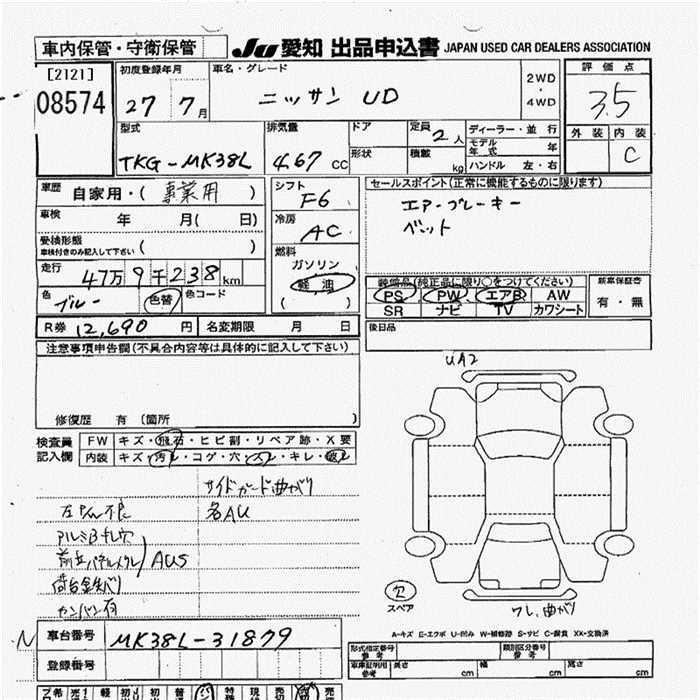 車内保管・守衛保管
JU 愛知 出品申込書 JAPAN USED CAR DEALERS ASSOCIATION
[2121]
08574
初度登録年月
27 7月
車名・グレード
ニッサン UD
2WD
・
4WD
評価点
3.5
外装 内装
C
型式
TKG-MK38L
排気量
4.67 cc
ドア
形状
定員
2人
積載
kg
ディーラー・並行
モデル年式 年
ハンドル 左・右
車歴
自家用・( 事業用 )
車検 年 月( 日)
受検形態
車検付きのみ記入して下さい ( )
走行
47万9千238km
色
ブルー
色替
色コード
シフト
F6
冷房
AC
燃料
ガソリン
(軽油)
セールスポイント(正常に機能するものに限ります)
エアーブレーキー
ベット
装備品(純正品に限り○をつけてください)
PS PW エアB AW
SR ナビ TV カワシート
新車保証書
有・無
R券 12,690 円
名変期限 月 日
後日品
注意事項申告欄(不具合内容等は具体的に記入して下さい)
修復歴 有(箇所 )
検査員
記入欄
FW キズ・飛石・ヒビ割・リペア跡・X要
内装 キズ・汚レ・コゲ・穴・スレ・キレ・破レ
UA2
サイドガード曲がり
各AU
アルミBキレ穴
AU5
荷台鉄バリ
カンバン有
欠
スペア
ワレ、曲がり
A-キズ E-エクボ U-凹み W-補修跡 S-サビ C-腐食 XX-交換済
車台番号 MK38L-31879
登録番号
型式指定番号
参考
類別区分番号
参考
車庫証明用
参考
長さ cm 幅 cm 高さ cm